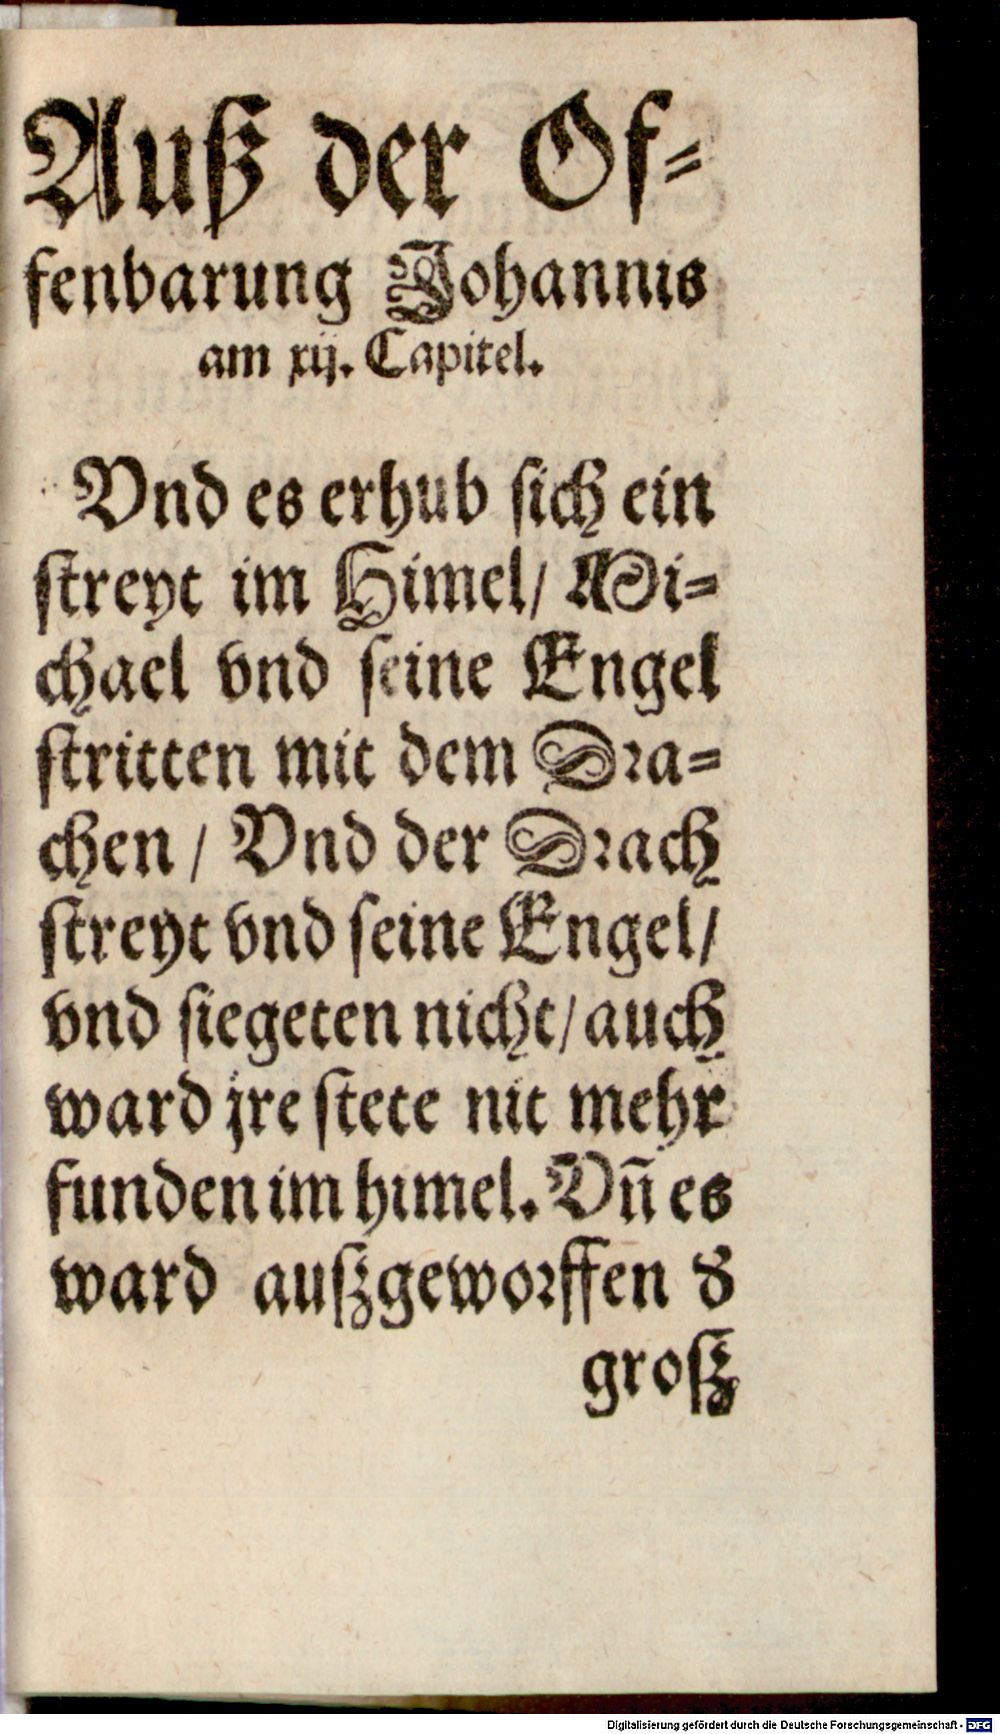 Auß der Of-
fenbarung Johannis
am xij. Capitel.
Vnd es erhub sich ein
streyt im Himel/ Mi-
chael vnd seine Engel
stritten mit dem Dra-
chen / Vnd der Drach
streyt vnd seine Engel/
vnd siegeten nicht/ auch
ward jre stete nit mehr
funden im himel. Vñ es
ward außgeworffen ď
groß
Digitalisierung gefördert durch die Deutsche Forschungsgemeinschaft - DFG